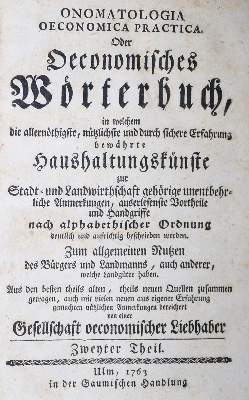 ONOMATOLOGIA
OECONOMICA PRACTICA.
Oder
Oeconomisches
Wörterbuch,
in welchem
die allernöthigste, nützlichste und durch sichere Erfahrung
bewährte
Haushaltungskünste
zur
Stadt- und Landwirthschaft gehörige unentbehr-
liche Anmerkungen, auserlesenste Vortheile
und Handgriffe
nach alphabethischer Ordnung
deutlich und aufrichtig beschrieben werden.
Zum allgemeinen Nutzen
des Bürgers und Landmanns, auch anderer,
welche Landgüter haben.
Aus den besten theils alten, theils neuen Quellen zusammen
getragen, auch mit vielen neuen aus eigener Erfahrung
gemachten nützlichen Anmerkungen bereichert
von einer
Gesellschaft oeconomischer Liebhaber
Zweyter Theil.
Ulm, 1763
in der Gaumischen Handlung